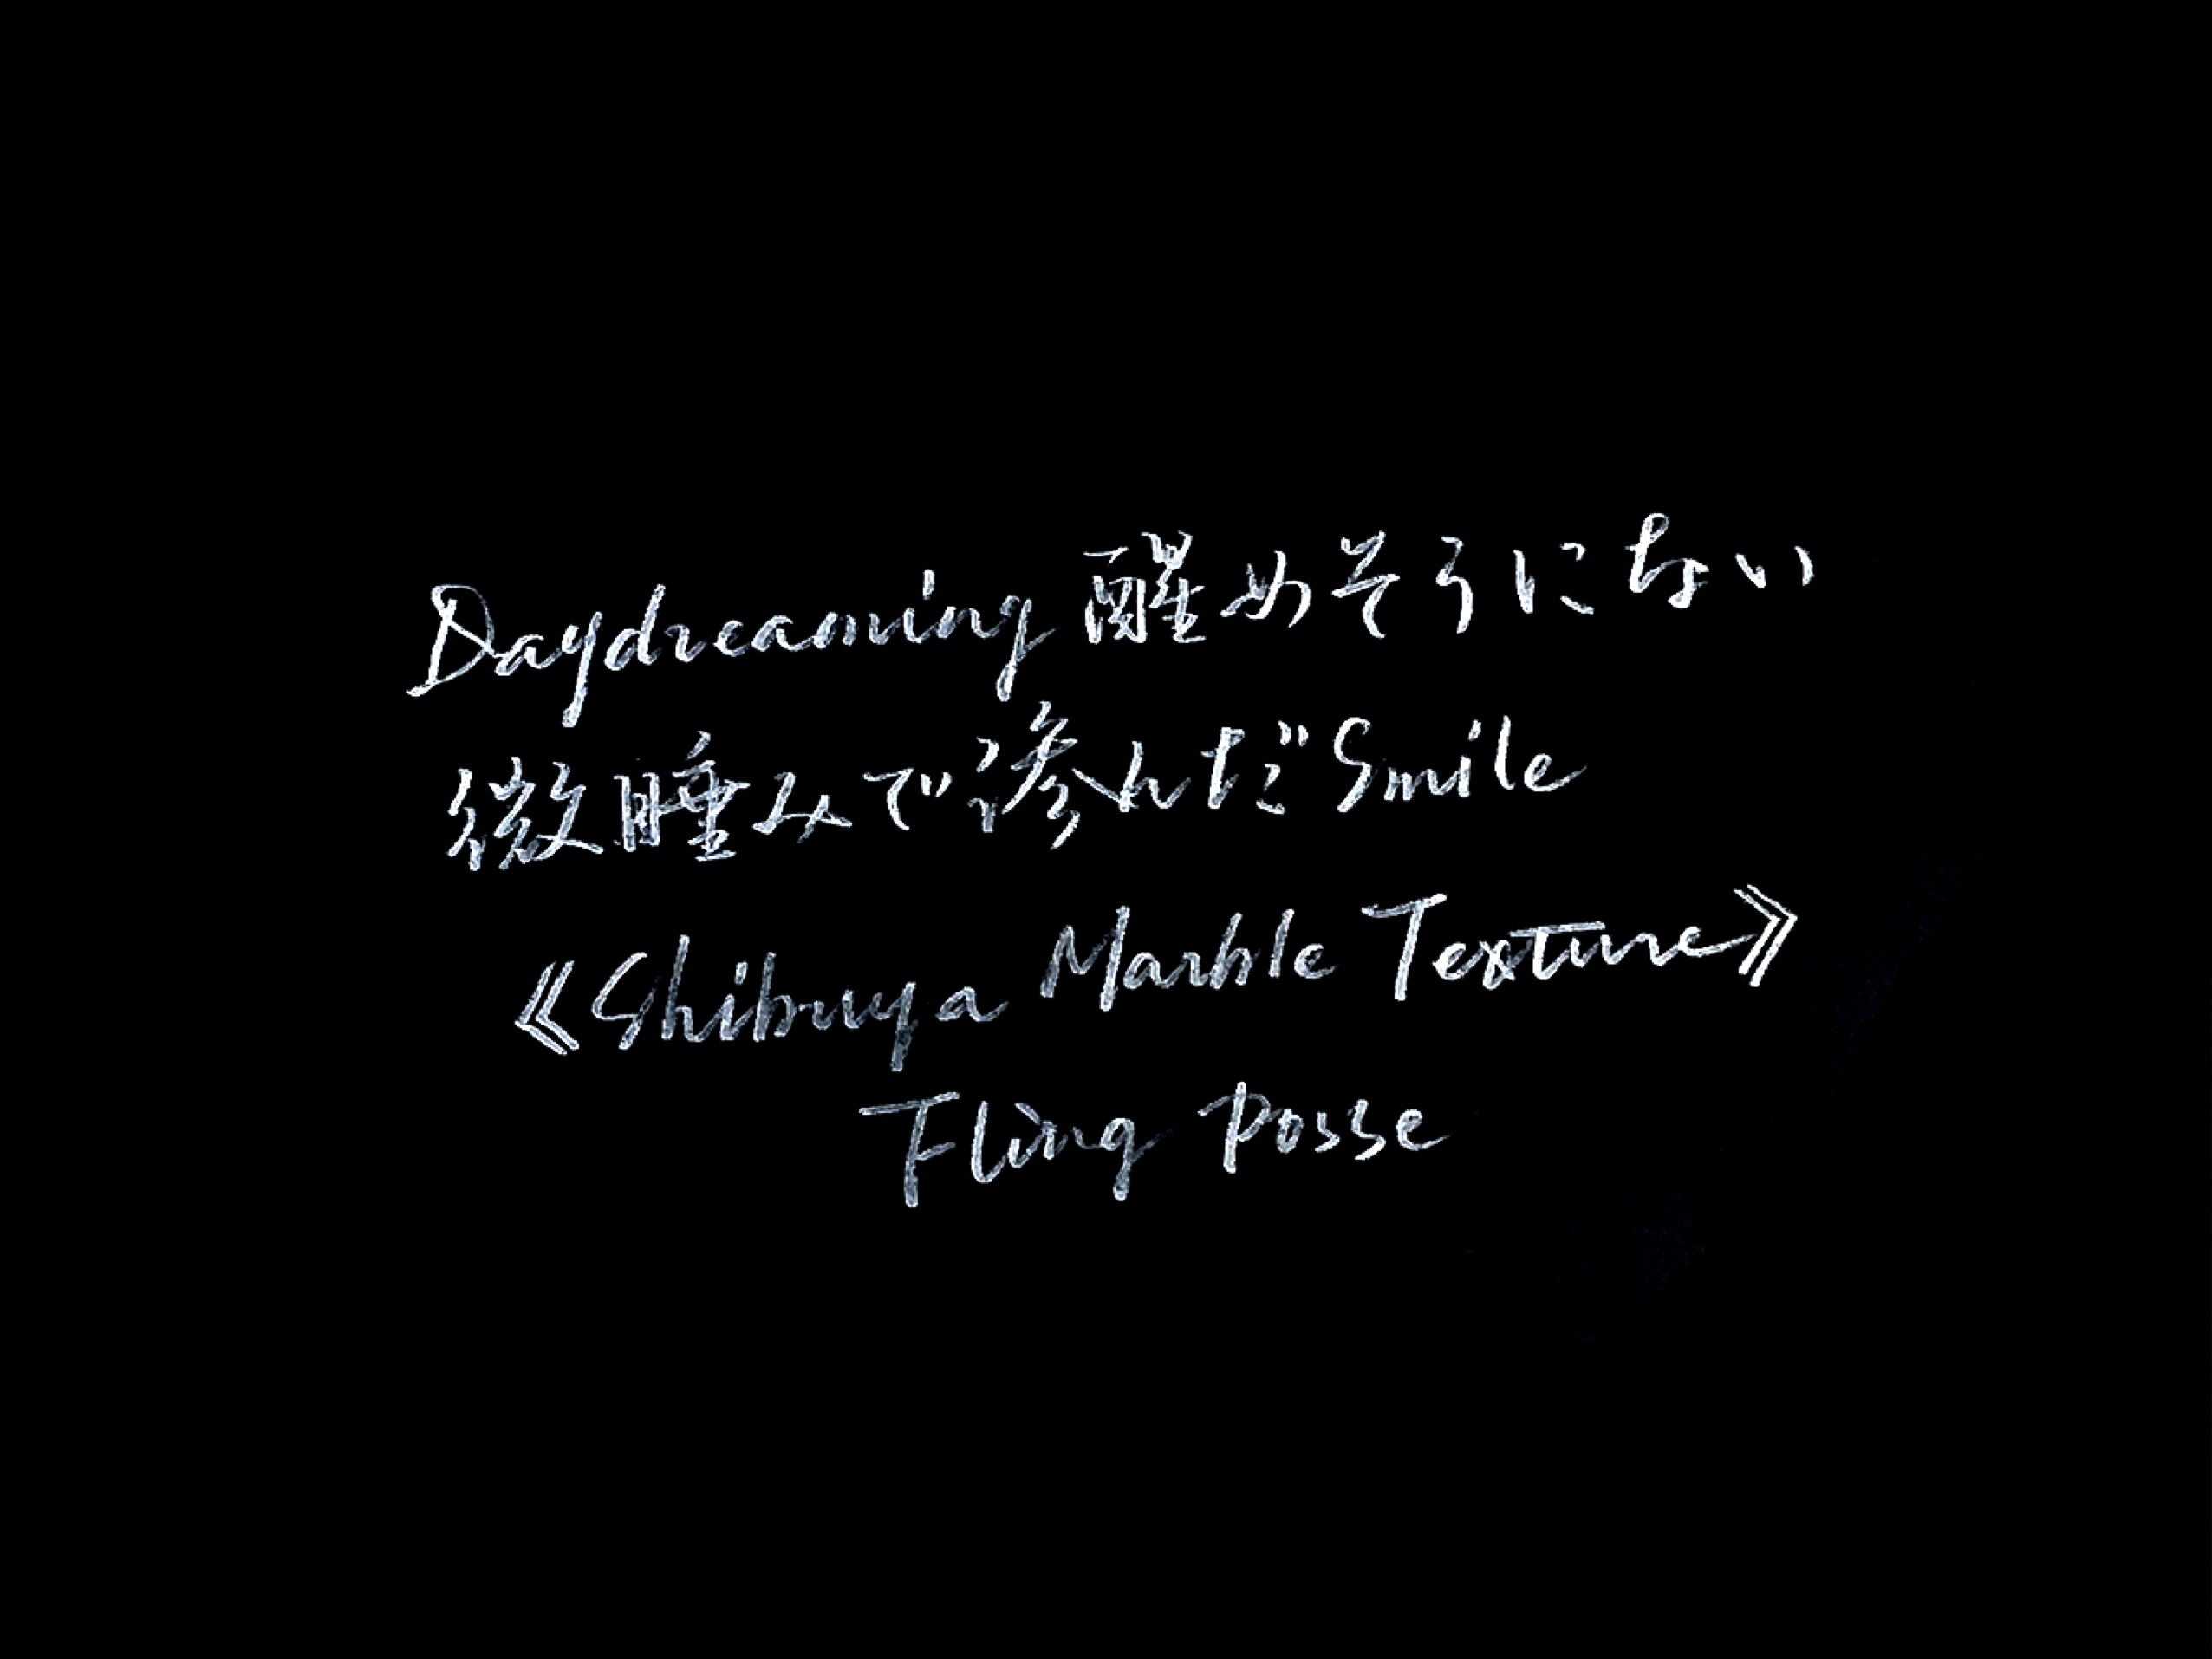 Daydreaming 醒めそうにない
微睡みで滲んだSmile
《Shibuya Marble Texture》
Fling Posse